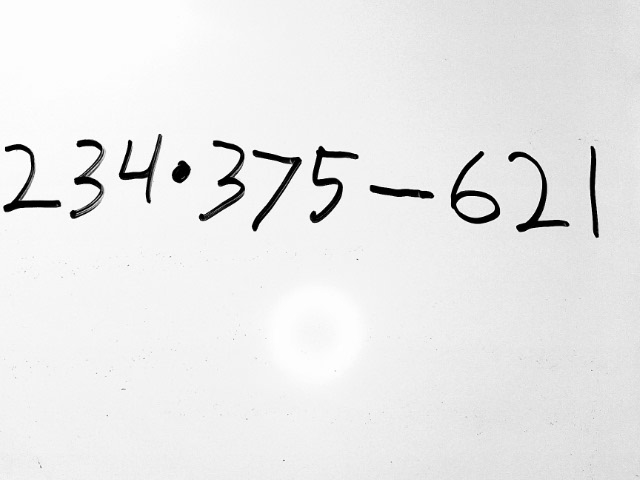 234·375-621